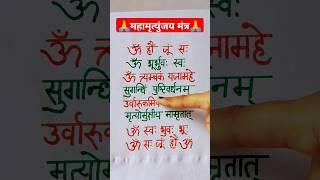 🙏महामृत्युंजय मंत्र🙏
ॐ हौं जूं सः
ॐ भूर्भुवः स्वः
ॐ त्र्यम्बकं यजामहे
सुगन्धिं पुष्टिवर्धनम्
उर्वारुकमिव
मृत्योर्मुक्षीय मामृतात्
ॐ स्वः भुवः भूः
ॐ सः जूं हौं ॐ